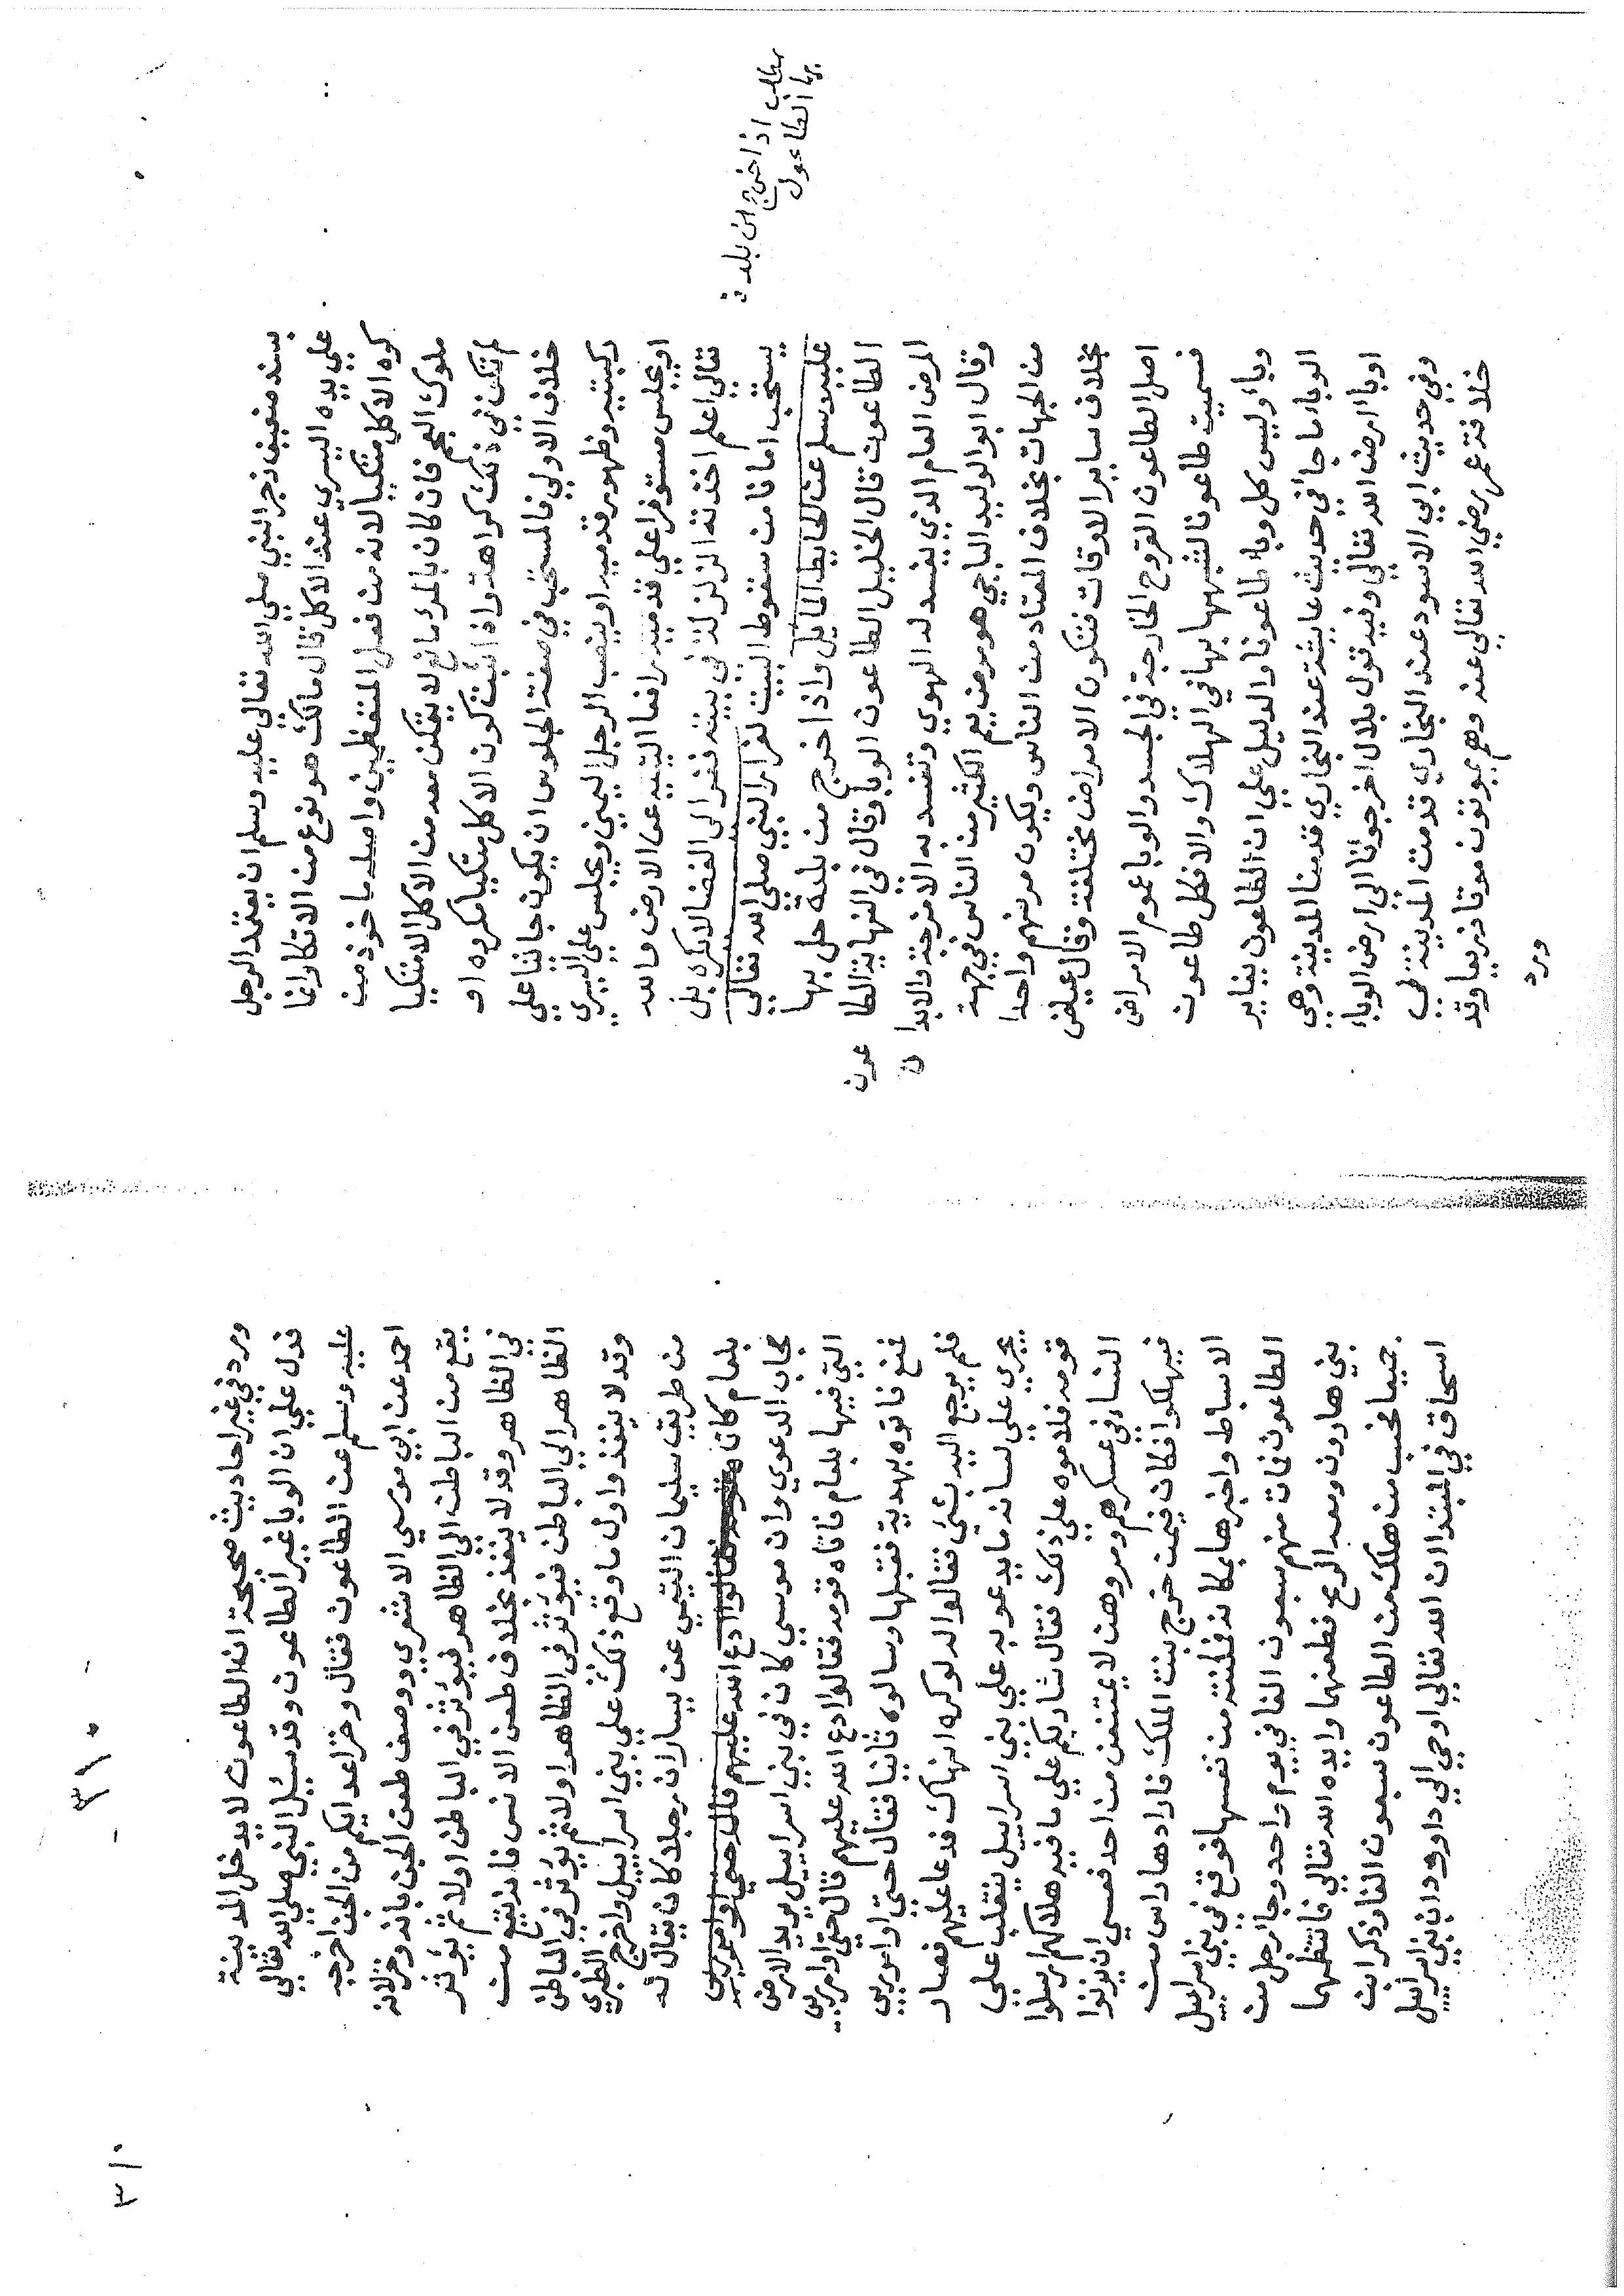 بسند ضعيف زجر النبي صلي الله تعالي عليه وسلم ان يعتمد الرجل
علي يده اليسري عند الاكل قال مالك هو نوع من الاتكا وانما
كره الاكل متكيا لانه من فعل المتعظمين واصله ماخوذ من
ملوك العجم فان كان بالمرء مانع لا يتمكن معه من الاكل الا متكيا
لم تكن في ذلك كراهة واذا ثبت كون الاكل متكيا مكروه او
خلاف الاولي فالمستحب في صفة الجلوس ان يكون جاثيا علي
ركبتيه وظهور قدميه او ينصب الرجل اليمني ويجلس علي اليسري
او يجلس مستوفزا علي قدميه رافعا اليتيه عن الارض والله
تعالي اعلم اخذته الزلزلة في بيته ففر الي الفضا لا يكره بل
يستحب امانا من سقوط البيت لفرار النبي صلي الله تعالي
عليه وسلم عن الحايط المايل واذا خرج من بلدة حل بها
الطاعون قال الخليل الطاعون الوبا وقال في النهاية الطا
عون
المرض العام الذي يفسد له الهوي وتفسد به الامزجة والابدا
ن
وقال ابو الوليد الباجي هو مرض يعم الكثير من الناس في جهة
من الجهات بخلاف المعتاد من الناس ويكون مرضهم واحدا
بخلاف ساير الاوقات فتكون الامراض مختلفة وقال عياض
اصل الطاعون القروح الخارجة في الجسد والوبا عموم الامراض
فسميت طاعونا لشبهها بها في الهلاك والا فكل طاعون
وباء وليس كل وباء طاعونا والدليل علي ان الطاعون يغاير
الوباء ما جا في حديث عايشة عند البخاري قدمنا المدينة وهي
اوبا ارض الله تعالي وفيه قول بلال اخرجونا الي ارض الوباء
وفي حديث ابي الاسود عند البخاري قدمت المدينة في
خلافة عمر رضي الله تعالي عنه وهم يموتون موتا ذريعا وقد
ورد
مطلب اذا خرج من بلدة
بها الطاعون
ورد في غير احاديث صحيحة ان الطاعون لا يدخل المدينة
فدل علي ان الوبا غير الطاعون وقد سئل النبي صلي الله تعالي
عليه وسلم عن الطاعون فقال وخز اعدايكم من الجن اخرجه
احمد عن ابي موسي الاشعري ووصف طعن الجن بانه وخز لانه
يقع من الباطن الي الظاهر فيؤثر في الباطن اولا ثم يؤثر
في الظاهر وقد لا ينفذ بخلاف طعن الانس فانه يقع من
الظاهر الي الباطن فيؤثر في الظاهر اولا ثم يؤثر في الباطن
وقد لا ينفذ واول ما وقع ذلك علي بني اسراييل واخرج الطبري
من طريق سليمان التيمي عن سيار ان رجلا كان يقال له
بلعام كان
مجاب الدعوي وان موسي كان في بني اسراييل يريد الارض
التي فيها بلعام فاتاه قومه فقالوا ادع الله عليهم قال حتي اوامر ربي
فمنع فاتوه بهدية فقبلها وسالوه ثانيا فقال حتي اوامر ربي
فلم يرجع اليه بشئ فقالوا له لو كره لنهاك فدعا عليهم فصار
يجري علي لسانه ما يدعو به علي بني اسراييل ينقلب علي
قومه فلاموه علي ذلك فقال سادلكم علي ما فيه هلاكهم ارسلوا
النساء في عسكرهم ومروهن لا يمتنعن من احد فعسي ان يزنوا
فيهلكوا فكان فيمن خرج بنت الملك فارادها راس من
الاسباط واخبرها بمكانه فمكنته من نفسها فوقع في بني اسراييل
الطاعون فمات منهم سبعون الفا في يوم واحد وجا رجل من
بني هارون ومعه الرمح فطعنهما وايده الله تعالي فانتظمهما
جميعا فحسب من هلك من الطاعون سبعون الفا وذكر ابن
اسحاق في المبتدا ان الله تعالي اوحي الي داوود ان بني اسراييل
٣١٠
٣١٠